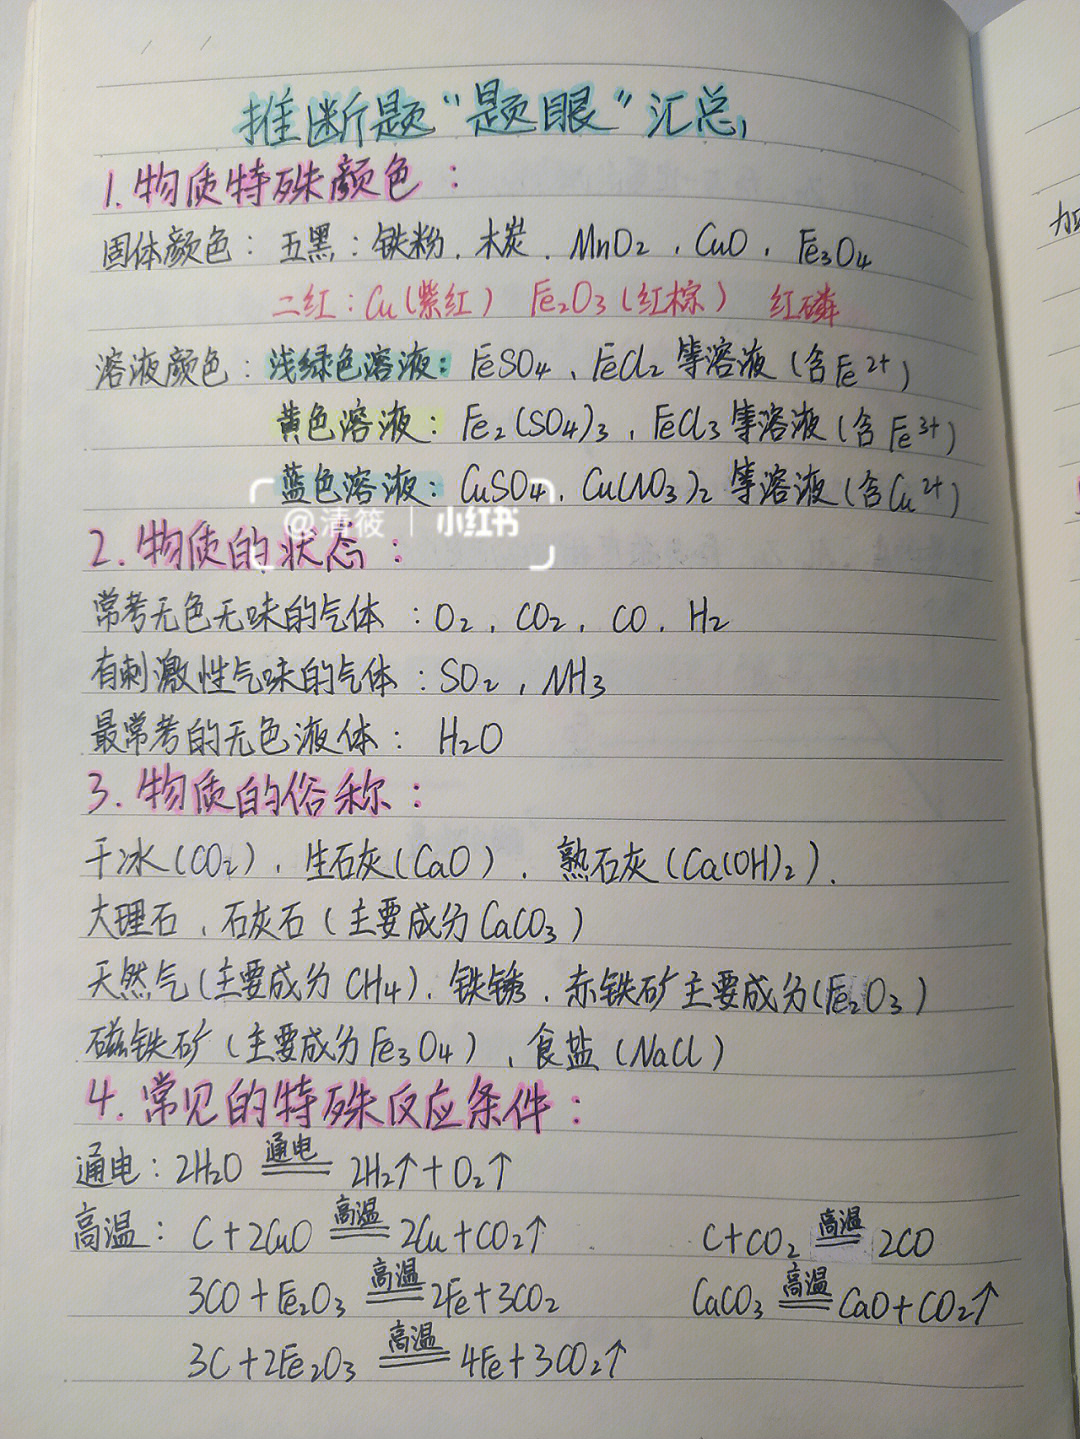 推断题“题眼”汇总
1.物质特殊颜色：
固体颜色：五黑：铁粉、木炭、MnO₂、CuO、Fe₃O₄
二红：Cu(紫红) Fe₂O₃(红棕) 红磷
溶液颜色：浅绿色溶液：FeSO₄、FeCl₂等溶液(含Fe²⁺)
黄色溶液：Fe₂(SO₄)₃、FeCl₃等溶液(含Fe³⁺)
蓝色溶液：CuSO₄、Cu(NO₃)₂等溶液(含Cu²⁺)
@清筱 | 小红书
2.物质的状态：
常考无色无味的气体：O₂、CO₂、CO、H₂
有刺激性气味的气体：SO₂、NH₃
最常考的无色液体：H₂O
3.物质的俗称：
干冰(CO₂)、生石灰(CaO)、熟石灰(Ca(OH)₂)、
大理石、石灰石(主要成分CaCO₃)
天然气(主要成分CH₄)、铁锈、赤铁矿主要成分(Fe₂O₃)
磁铁矿(主要成分Fe₃O₄)、食盐(NaCl)
4.常见的特殊反应条件：
通电：2H₂O 通电 2H₂↑+O₂↑
高温：C+2CuO 高温 2Cu+CO₂↑ C+CO₂ 高温 2CO
3CO+Fe₂O₃ 高温 2Fe+3CO₂ CaCO₃ 高温 CaO+CO₂↑
3C+2Fe₂O₃ 高温 4Fe+3CO₂↑